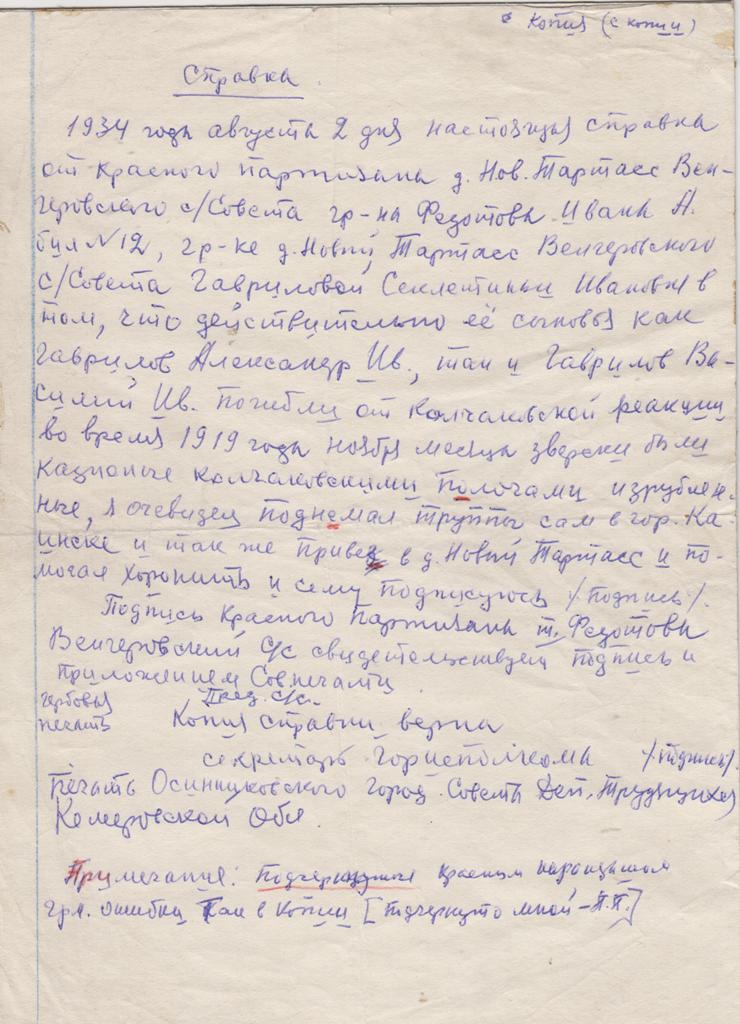 Копия (с копии)
Справка
1934 года августа 2 дня настоящая справка
от красного партизана д. Нов. Тартасс Вен-
геровского с/Совета гр-на Федотова Ивана А.
бил N12, гр-ке д. Новый Тартасс Венгеровского
с/Совета Гавриловой Секлетиньи Ивановны в
том, что действительно её сыновья как
Гаврилов Александр Ив., так и Гаврилов Ва-
силий Ив. погибли от колчаковской реакции
во время 1919 года ноября месяца зверски были
казноные колчаковскими полочами изрублен-
ные, я очевидец поднемал труппы сам в гор. Ка-
инске и так же привез в д. Новый Тартасс и по-
могал хоронить и сему подписуюсь /подпись/.
Подпись красного партизана т. Федотова
Венгеровский с/с свидетельствует подпись и
приложением Совпечати
гербовая Пред. с/с.
печать Копия справки верна
секретарь горисполкома /подпись/.
печать Осинниковского город. Совета Деп. Трудящихся
Кемеровской Обл.
Примечание: подчеркнутые красным карандашом
гр. ошибки так в копии [подчеркнуто мной – П.П.]